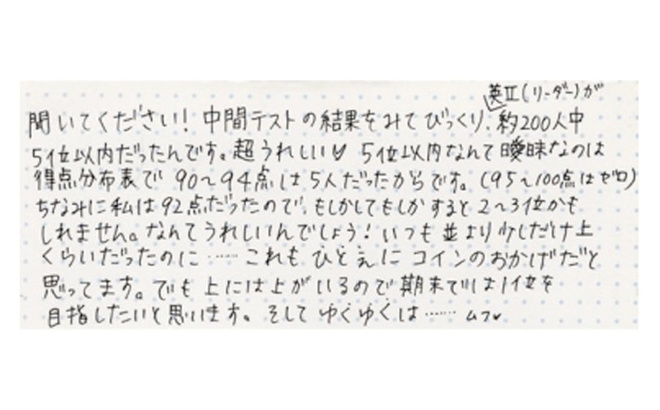 英Ⅱ(リーダー)が
聞いてください！中間テストの結果をみてびっくり、約200人中
5位以内だったんです。超うれしい♡ 5位以内なんて曖昧なのは
得点分布表で 90〜94点は5人だったからです。(95〜100点はゼロ)
ちなみに私は92点だったので、もしかしてもしかすると2〜3位かも
しれません。なんてうれしいんでしょう！いつも並より少しだけ上
くらいだったのに……これもひとえにコインのおかげだと
思ってます。でも上には上がいるので期末では1位を
目指したいと思います。そしてゆくゆくは……ムフ♥